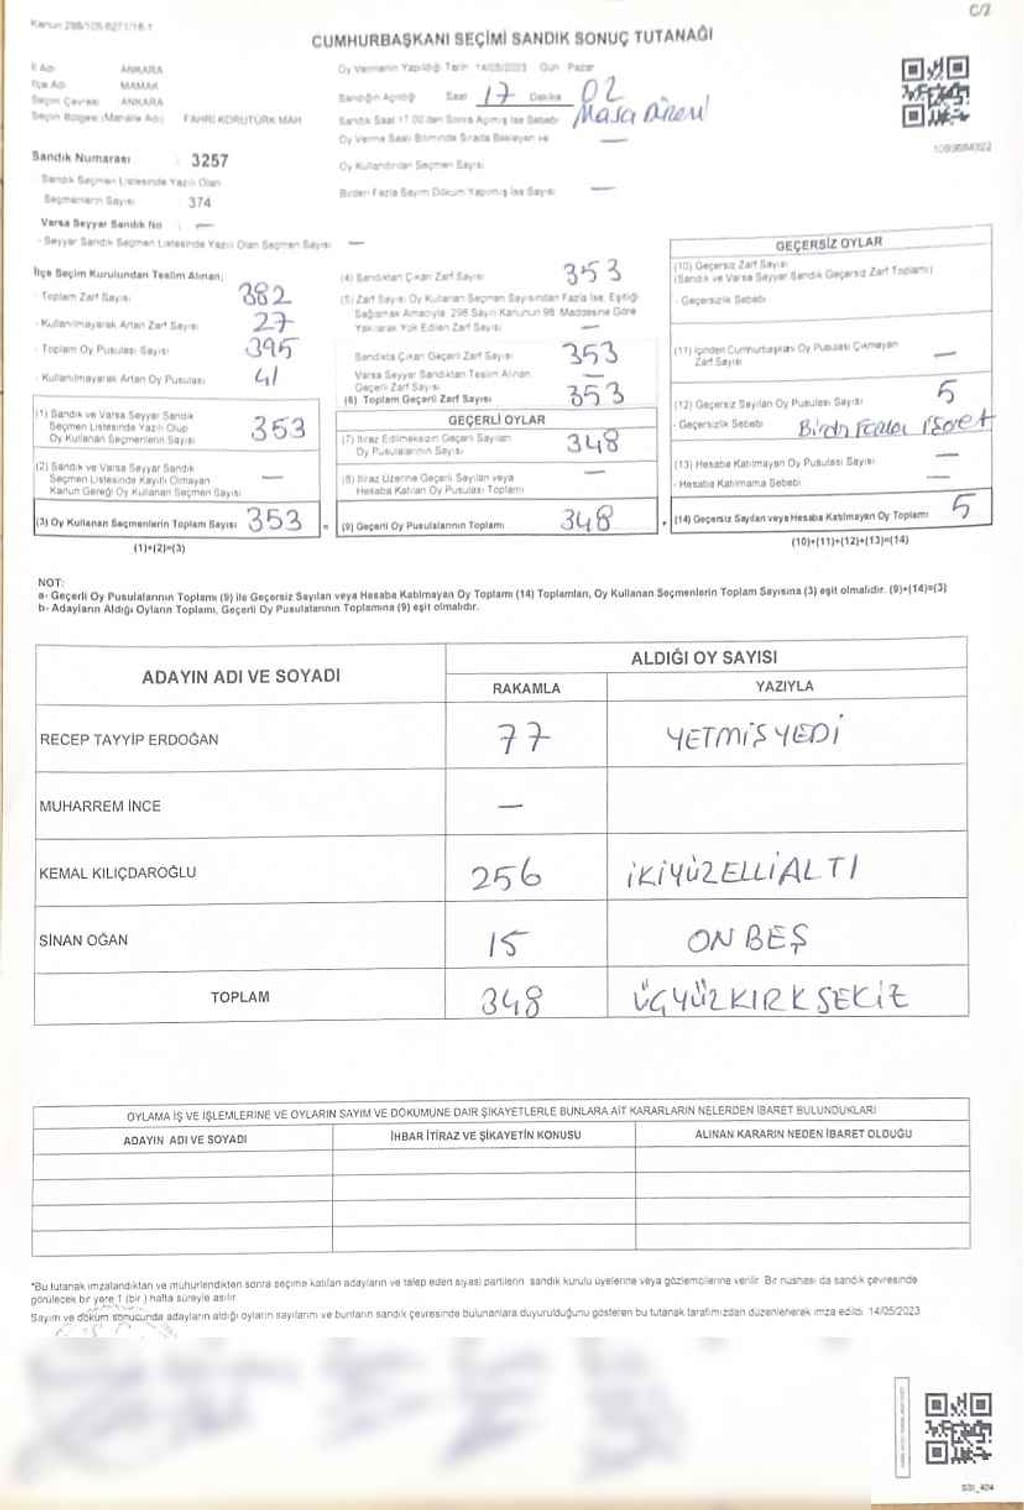 Kanun 298/105-6271/16-1
C/2
CUMHURBAŞKANI SEÇİMİ SANDIK SONUÇ TUTANAĞI
İl Adı ANKARA
İlçe Adı MAMAK
Seçim Çevresi ANKARA
Seçim Bölgesi (Mahalle Adı) FAHRİ KORUTÜRK MAH
Sandık Numarası : 3257
Sandık Seçmen Listesinde Yazılı Olan
Seçmenlerin Sayısı 374
Varsa Seyyar Sandık No : —
- Seyyar Sandık Seçmen Listesinde Yazılı Olan Seçmen Sayısı —
Oy Vermenin Yapıldığı Tarih 14/05/2023 Gün Pazar
Sandığın Açıldığı Saat 17 Dakika 02
Sandık Saat 17.00'den Sonra Açılmış İse Sebebi Masa Düzeni
Oy Verme Saati Bitiminde Sırada Bekleyen ve —
Oy Kullandırılan Seçmen Sayısı
Birden Fazla Sayım Döküm Yapılmış İse Sayısı —
İlçe Seçim Kurulundan Teslim Alınan;
- Toplam Zarf Sayısı 382
- Kullanılmayarak Artan Zarf Sayısı 27
- Toplam Oy Pusulası Sayısı 395
- Kullanılmayarak Artan Oy Pusulası 41
(1) Sandık ve Varsa Seyyar Sandık
Seçmen Listesinde Yazılı Olup
Oy Kullanan Seçmenlerin Sayısı 353
(2) Sandık ve Varsa Seyyar Sandık
Seçmen Listesinde Kayıtlı Olmayan
Kanun Gereği Oy Kullanan Seçmen Sayısı —
(3) Oy Kullanan Seçmenlerin Toplam Sayısı 353
(1)+(2)=(3)
(4) Sandıktan Çıkan Zarf Sayısı 353
(5) Zarf Sayısı Oy Kullanan Seçmen Sayısından Fazla İse, Eşitliği
Sağlamak Amacıyla 298 Sayılı Kanunun 98. Maddesine Göre
Yakılarak Yok Edilen Zarf Sayısı —
Sandıkta Çıkan Geçerli Zarf Sayısı 353
Varsa Seyyar Sandıktan Teslim Alınan
Geçerli Zarf Sayısı —
(6) Toplam Geçerli Zarf Sayısı 353
GEÇERLİ OYLAR
(7) İtiraz Edilmeksizin Geçerli Sayılan
Oy Pusulalarının Sayısı 348
(8) İtiraz Üzerine Geçerli Sayılan veya
Hesaba Katılan Oy Pusulası Toplamı —
(9) Geçerli Oy Pusulalarının Toplamı 348
GEÇERSİZ OYLAR
(10) Geçersiz Zarf Sayısı
(Sandık ve Varsa Seyyar Sandık Geçersiz Zarf Toplamı)
- Geçersizlik Sebebi
(11) İçinden Cumhurbaşkanı Oy Pusulası Çıkmayan
Zarf Sayısı —
(12) Geçersiz Sayılan Oy Pusulası Sayısı 5
- Geçersizlik Sebebi
(13) Hesaba Katılmayan Oy Pusulası Sayısı —
- Hesaba Katılmama Sebebi —
(14) Geçersiz Sayılan veya Hesaba Katılmayan Oy Toplamı 5
(10)+(11)+(12)+(13)=(14)
NOT:
a- Geçerli Oy Pusulalarının Toplamı (9) ile Geçersiz Sayılan veya Hesaba Katılmayan Oy Toplamı (14) Toplamları, Oy Kullanan Seçmenlerin Toplam Sayısına (3) eşit olmalıdır. (9)+(14)=(3)
b- Adayların Aldığı Oyların Toplamı, Geçerli Oy Pusulalarının Toplamına (9) eşit olmalıdır.
ADAYIN ADI VE SOYADI
ALDIĞI OY SAYISI
RAKAMLA YAZIYLA
RECEP TAYYİP ERDOĞAN 77 YETMİŞYEDİ
MUHARREM İNCE —
KEMAL KILIÇDAROĞLU 256 İKİYÜZELLİALTI
SİNAN OĞAN 15 ON BEŞ
TOPLAM 348 ÜÇYÜZKIRKSEKİZ
OYLAMA İŞ VE İŞLEMLERİNE VE OYLARIN SAYIM VE DÖKÜMÜNE DAİR ŞİKAYETLERLE BUNLARA AİT KARARLARIN NELERDEN İBARET BULUNDUKLARI
ADAYIN ADI VE SOYADI İHBAR İTİRAZ VE ŞİKAYETİN KONUSU ALINAN KARARIN NEDEN İBARET OLDUĞU
*Bu tutanak imzalandıktan ve mühürlendikten sonra seçime katılan adayların ve talep eden siyasi partilerin sandık kurulu üyelerine veya gözlemcilerine verilir. Bir nüshası da sandık çevresinde
görülecek bir yere 1 (bir) hafta süreyle asılır.
Sayım ve döküm sonucunda adayların aldığı oyların sayılarını ve bunların sandık çevresinde bulunanlara duyurulduğunu gösteren bu tutanak tarafımızdan düzenlenerek imza edildi. 14/05/2023